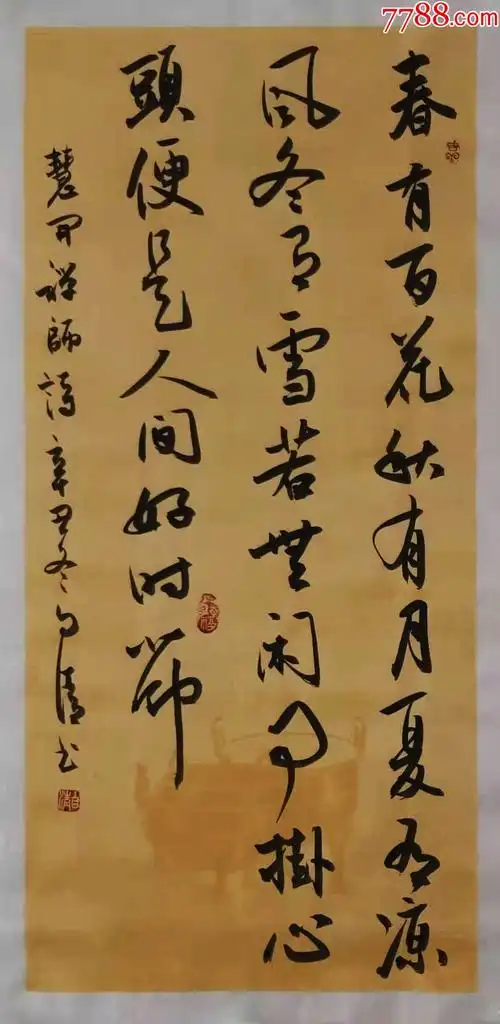 7788.com
春有百花秋有月夏有凉
风冬有雪若無闲事掛心
頭便是人间好时節
慧開禅師詩辛丑冬白清书